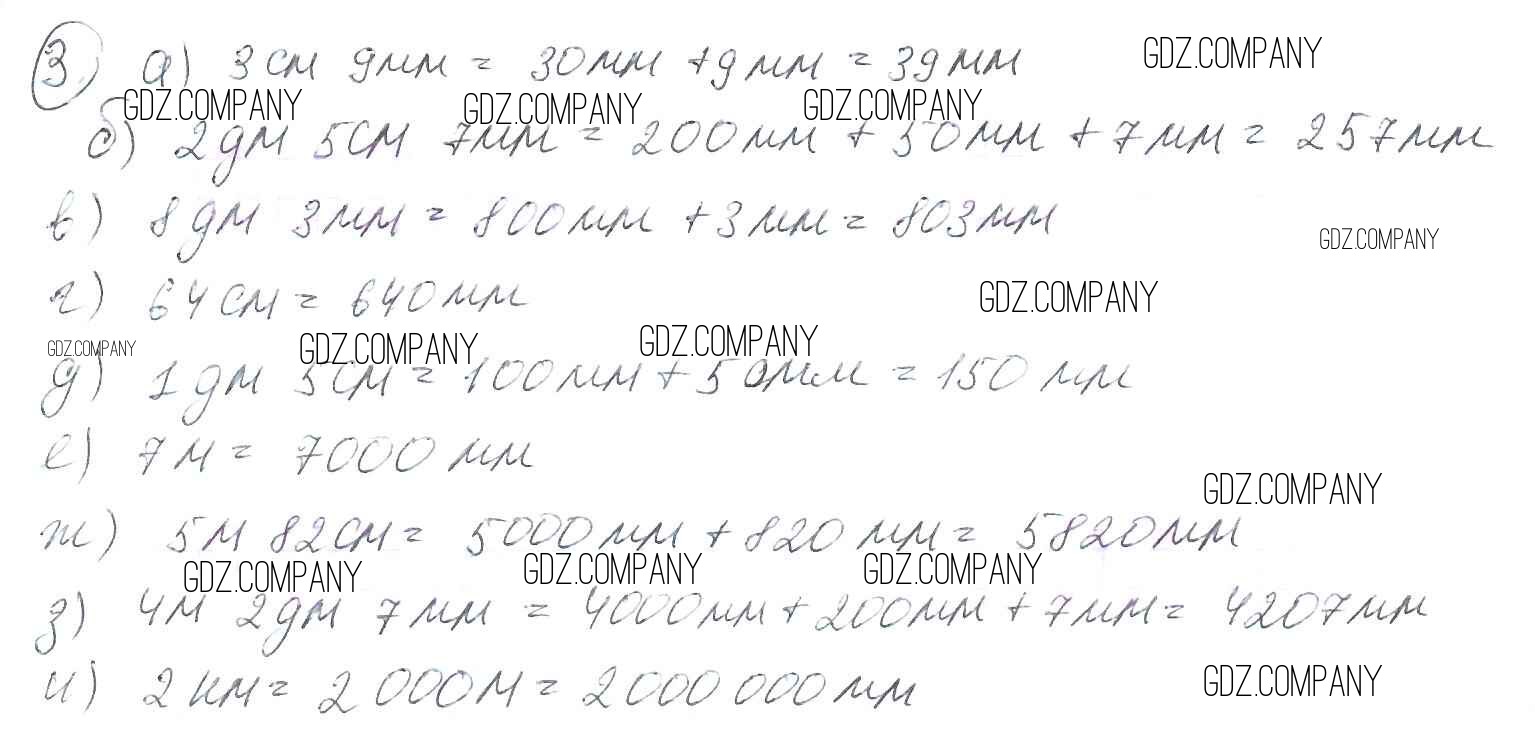 3) а) 3 см 9 мм = 30 мм + 9 мм = 39 мм GDZ.COMPANY
GDZ.COMPANY GDZ.COMPANY GDZ.COMPANY
б) 2 дм 5 см 7 мм = 200 мм + 50 мм + 7 мм = 257 мм
в) 8 дм 3 мм = 800 мм + 3 мм = 803 мм
GDZ.COMPANY
г) 64 см = 640 мм GDZ.COMPANY
GDZ.COMPANY GDZ.COMPANY GDZ.COMPANY
д) 1 дм 5 см = 100 мм + 50 мм = 150 мм
е) 7 м = 7000 мм
GDZ.COMPANY
ж) 5 м 82 см = 5000 мм + 820 мм = 5820 мм
GDZ.COMPANY GDZ.COMPANY GDZ.COMPANY
з) 4 м 2 дм 7 мм = 4000 мм + 200 мм + 7 мм = 4207 мм
и) 2 км = 2 000 м = 2 000 000 мм GDZ.COMPANY